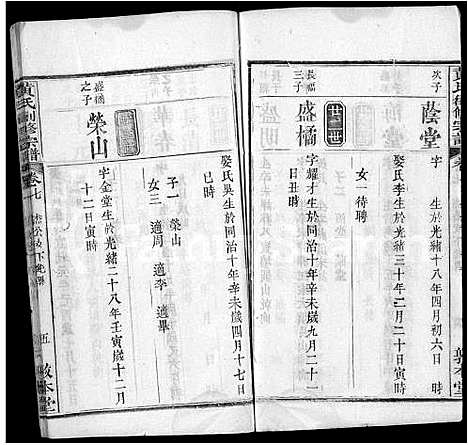 次子
蔭堂
字　生於光緒十八年四月初六日　時
娶氏李生於光緒三十年二月二十日寅時
女一待聘
廿三世
長福三子
盛橘
字耀才生於同治十年辛未歲九月二十一
日丑時
娶氏吳生於同治十年辛未歲四月十七日
巳時
子一　榮山
女三　適周　適李　適畢
廿四世
盛橘之子
榮山
字金堂生於光緒二十八年壬寅歲十二月
十二日寅時
黃氏創修宗譜
卷七
五
敦本堂